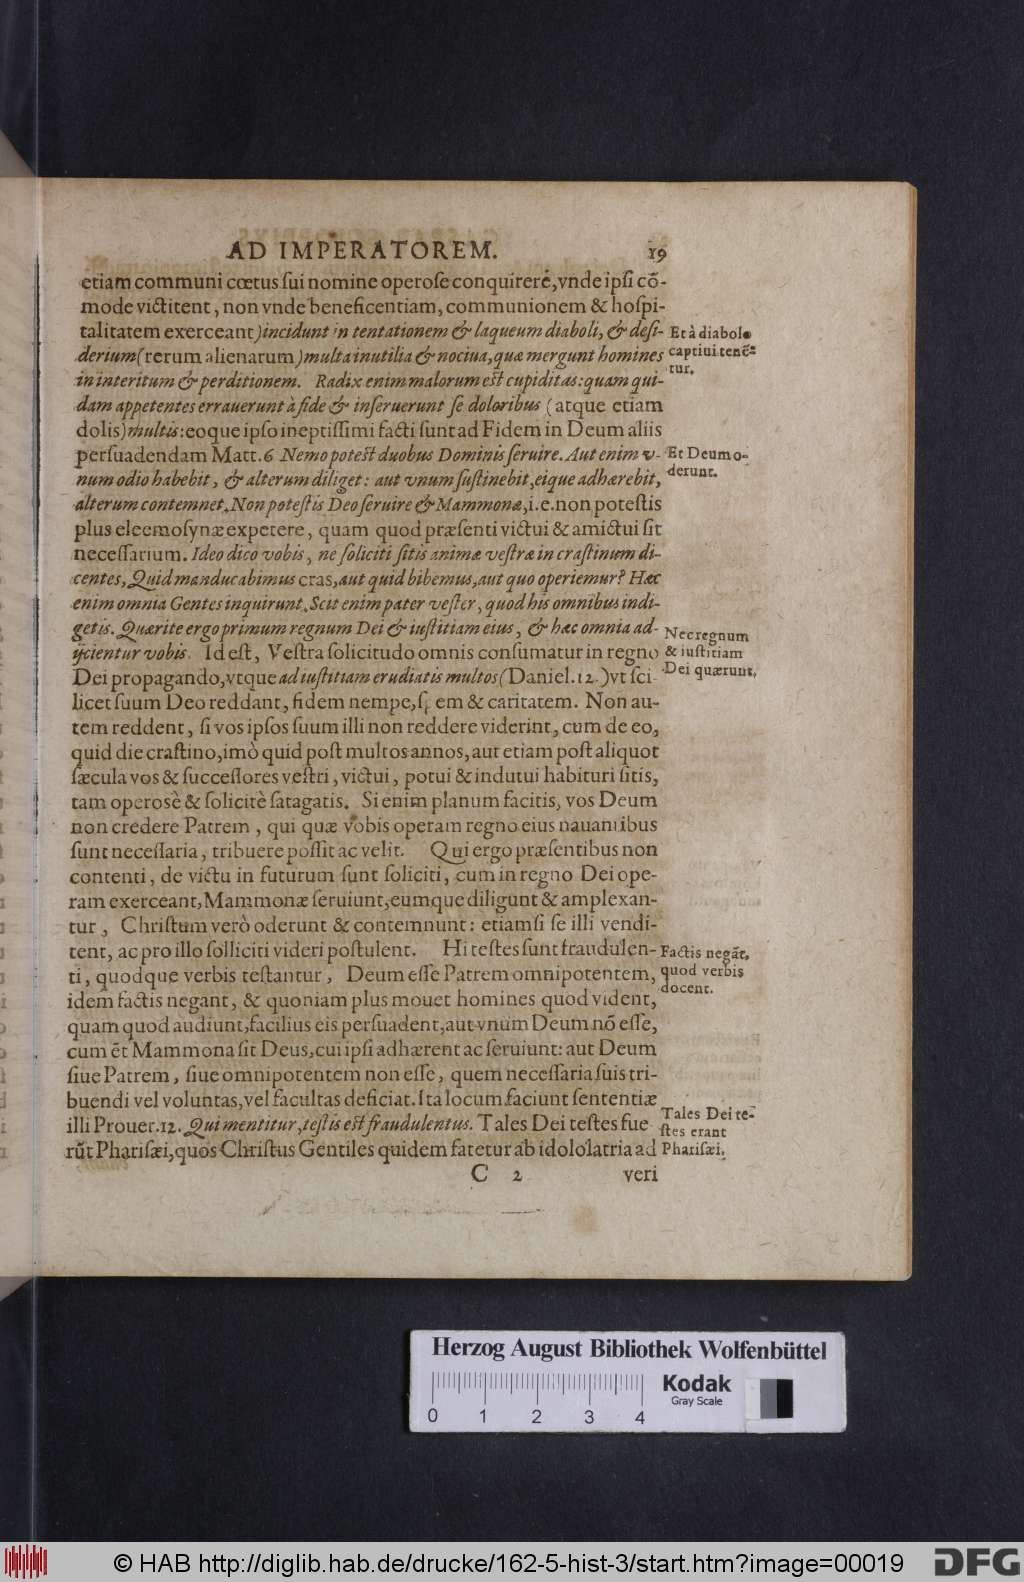 AD IMPERATOREM. 19
etiam communi cœtus ſui nomine operoſe conquirere, vnde ipſi cō-
mode victitent, non vnde beneficentiam, communionem & hoſpi-
talitatem exerceant) incidunt in tentationem & laqueum diaboli, & deſi-
derium (rerum alienarum) multa inutilia & nociua, quæ mergunt homines
in interitum & perditionem. Radix enim malorum eſt cupiditas: quam qui-
dam appetentes errauerunt à fide & inſeruerunt ſe doloribus (atque etiam
dolis) multis: eoque ipſo ineptiſſimi facti ſunt ad Fidem in Deum aliis
perſuadendam Matt. 6 Nemo poteſt duobus Dominis ſeruire. Aut enim v-
num odio habebit, & alterum diliget: aut vnum ſuſtinebit, eique adhærebit,
alterum contemnet, Non poteſtis Deo ſeruire & Mammonæ, i.e. non poteſtis
plus eleemoſynæ expetere, quam quod præſenti victui & amictui ſit
neceſſarium. Ideo dico vobis, ne ſoliciti ſitis animæ veſtræ in craſtinum di-
centes, Quid manducabimus cras, aut quid bibemus, aut quo operiemur? Hæc
enim omnia Gentes inquirunt. Scit enim pater veſter, quod his omnibus indi-
getis. Quærite ergo primum regnum Dei & iuſtitiam eius, & hæc omnia ad-
ijcientur vobis. Id eſt, Veſtra ſolicitudo omnis conſumatur in regno
Dei propagando, vtque ad iuſtitiam erudiatis multos (Daniel. 12.) vt ſci-
licet ſuum Deo reddant, fidem nempe, em & caritatem. Non au-
tem reddent, ſi vos ipſos ſuum illi non reddere viderint, cum de eo,
quid die craſtino, imò quid poſt multos annos, aut etiam poſt aliquot
ſæcula vos & ſucceſſores veſtri, victui, potui & indutui habituri ſitis,
tam operosè & ſolicitè ſatagatis. Si enim planum facitis, vos Deum
non credere Patrem, qui quæ vobis operam regno eius nauantibus
ſunt neceſſaria, tribuere poſſit ac velit. Qui ergo præſentibus non
contenti, de victu in futurum ſunt ſoliciti, cum in regno Dei ope-
ram exerceant, Mammonæ ſeruiunt, eumque diligunt & amplexan-
tur, Chriſtum verò oderunt & contemnunt: etiamſi ſe illi vendi-
tent, ac pro illo ſolliciti videri poſtulent. Hi teſtes ſunt fraudulen-
ti, quod que verbis teſtantur, Deum eſſe Patrem omnipotentem,
idem factis negant, & quoniam plus mouet homines quod vident,
quam quod audiunt, facilius eis perſuadent, aut vnum Deum nō eſſe,
cum ēt Mammona ſit Deus, cui ipſi adhærent ac ſeruiunt: aut Deum
ſiue Patrem, ſiue omnipotentem non eſſe, quem neceſſaria ſuis tri-
buendi vel voluntas, vel facultas deficiat. Ita locum faciunt ſententiæ
illi Prouer. 12. Qui mentitur, teſtis eſt fraudulentus. Tales Dei teſtes fue
rūt Phariſæi, quos Chriſtus Gentiles quidem fatetur ab idololatria ad
C 2 veri
Et à diabolo
captiui tenē-
tur.
Et Deum o-
derunt.
Nec regnum
& iuſtitiam
Dei quærunt,
Factis negāt,
quod verbis
docent.
Tales Dei te-
ſtes erant
Phariſæi,
Herzog August Bibliothek Wolfenbüttel
0 1 2 3 4
Kodak
Gray Scale
© HAB http://diglib.hab.de/drucke/162-5-hist-3/start.htm?image=00019
DFG